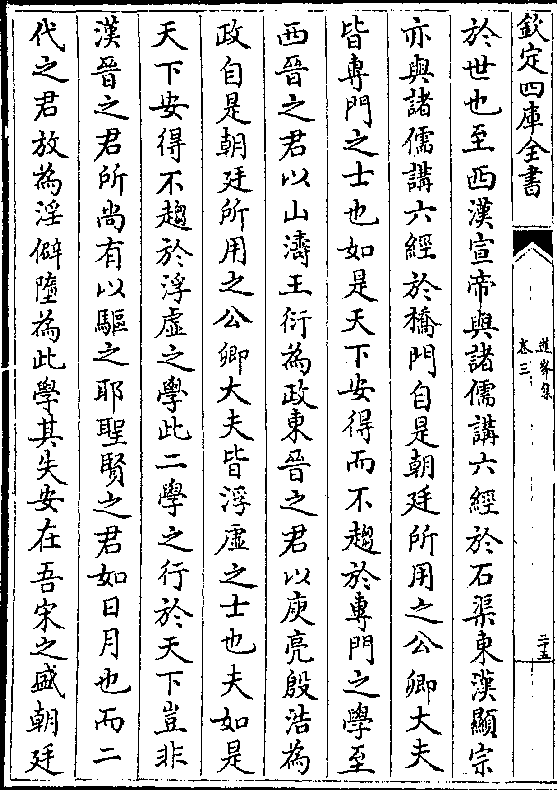 欽定四庫全書
卷三
二十五
於世也至西漢宣帝與諸儒講六經於石渠東漢顯宗
亦與諸儒講六經於橋門自是朝廷所用之公卿大夫
皆專門之士也如是天下安得而不趨於專門之學至
西晉之君以山濤王衍為政東晉之君以庾亮殷浩為
政自是朝廷所用之公卿大夫皆浮虛之士也夫如是
天下安得不趨於浮虛之學此二學之行於天下豈非
漢晉之君所尚有以驅之耶聖賢之君如日月也而二
代之君放為淫僻墮為此學其失安在吾宋之盛朝廷